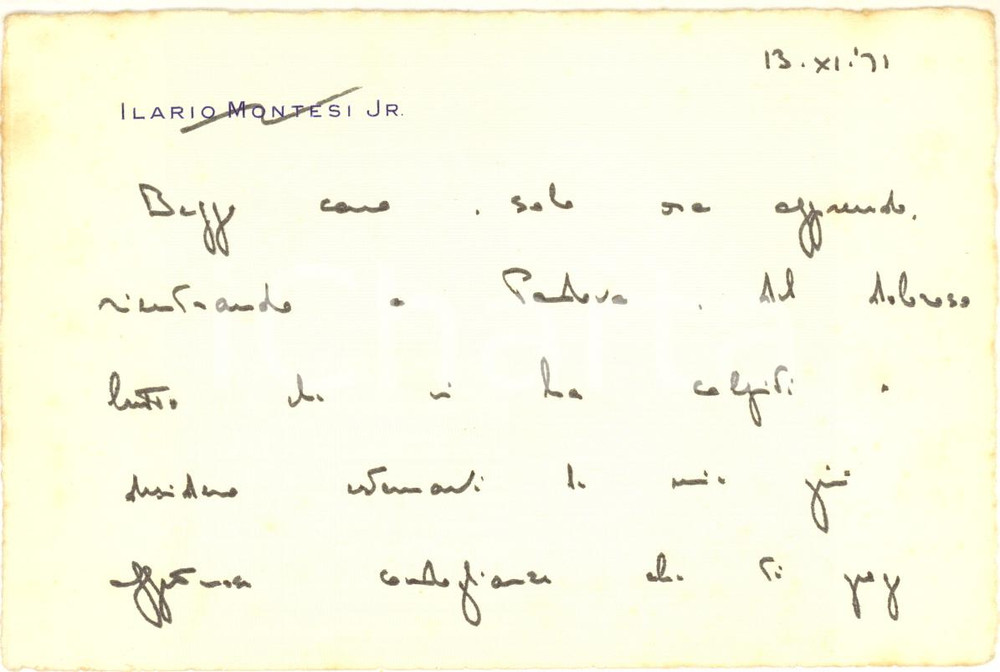 13.XI.'71
ILARIO MONTESI JR.
Beppe caro, solo ora apprendo,
rientrando a Padova, del doloroso
lutto che vi ha colpiti e
desidero esternarti le mie più
affettuose condoglianze che ti prego